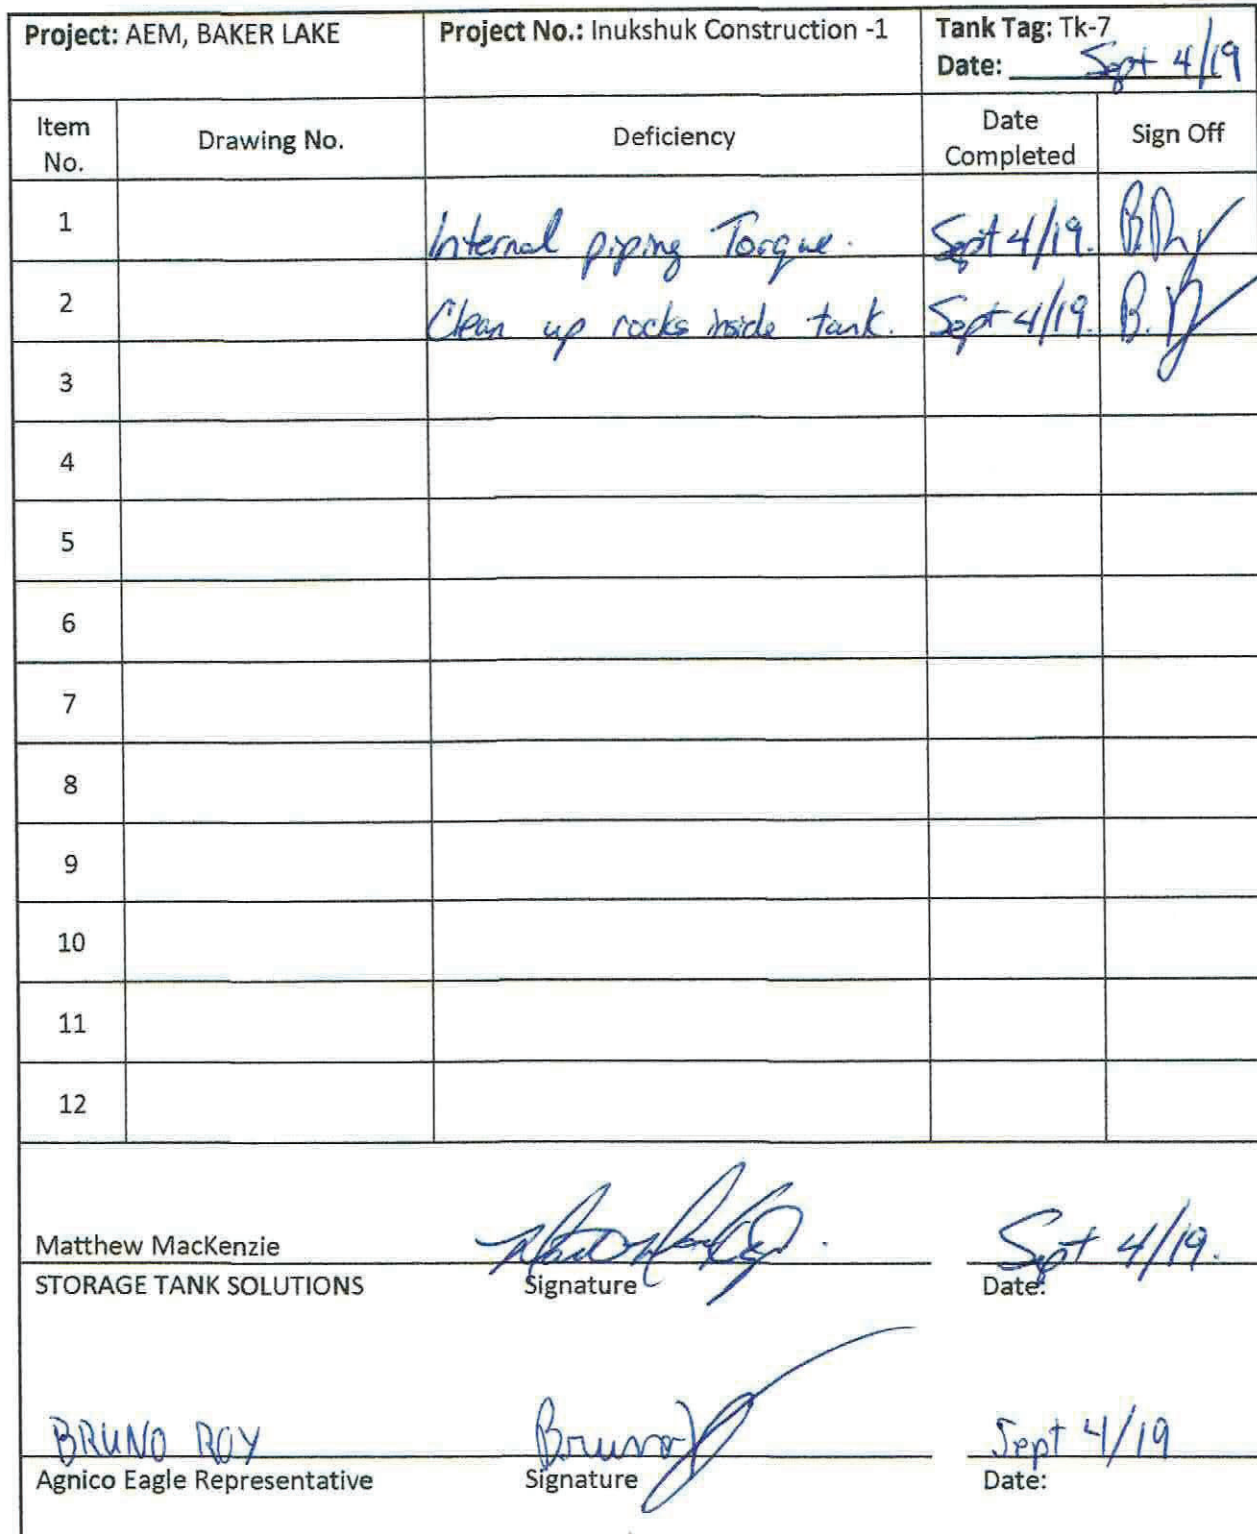 Project: AEM, BAKER LAKE Project No.: Inukshuk Construction -1 Tank Tag: Tk-7
Date: Sept 4/19
Item No. Drawing No. Deficiency Date Completed Sign Off
1 Internal piping Torque. Sept 4/19.
2 Clean up rocks inside tank. Sept 4/19.
3
4
5
6
7
8
9
10
11
12
Matthew MacKenzie Sept 4/19.
STORAGE TANK SOLUTIONS Signature Date:
BRUNO ROY Bruno Sept 4/19
Agnico Eagle Representative Signature Date: